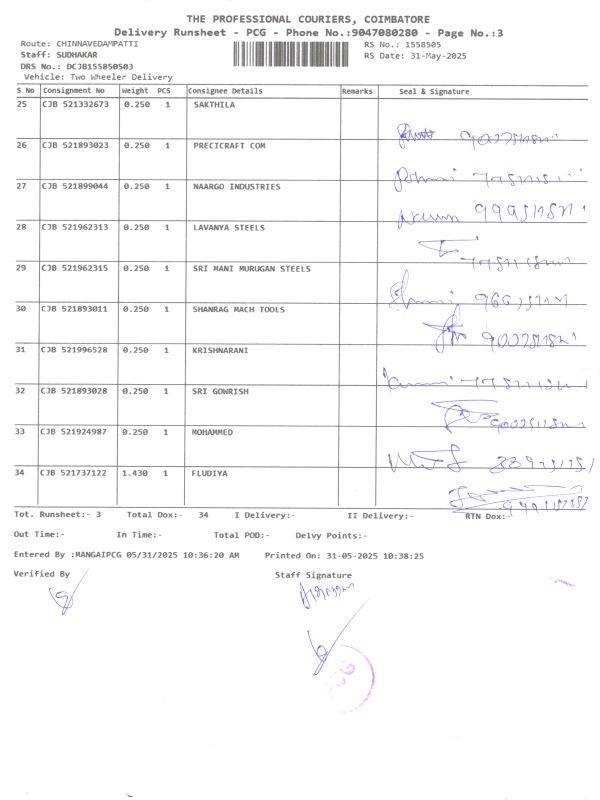 THE PROFESSIONAL COURIERS, COIMBATORE
Delivery Runsheet - PCG - Phone No.:9047080280 - Page No.:3
Route: CHINNAVEDAMPATTI RS No.: 1558505
Staff: SUDHAKAR RS Date: 31-May-2025
DRS No.: DCJB155850503
Vehicle: Two Wheeler Delivery
S No Consignment No Weight PCS Consignee Details Remarks Seal & Signature
25 CJB 521332673 0.250 1 SAKTHILA
26 CJB 521893023 0.250 1 PRECICRAFT COM
27 CJB 521899044 0.250 1 NAARGO INDUSTRIES
28 CJB 521962313 0.250 1 LAVANYA STEELS
29 CJB 521962315 0.250 1 SRI MANI MURUGAN STEELS
30 CJB 521893011 0.250 1 SHANRAG MACH TOOLS
31 CJB 521996528 0.250 1 KRISHNARANI
32 CJB 521893028 0.250 1 SRI GOWRISH
33 CJB 521924987 0.250 1 MOHAMMED
34 CJB 521737122 1.430 1 FLUDIYA
Tot. Runsheet:- 3 Total Dox:- 34 I Delivery:- II Delivery:- RTN Dox:-
Out Time:- In Time:- Total POD:- Delvy Points:-
Entered By :MANGAIPCG 05/31/2025 10:36:20 AM Printed On: 31-05-2025 10:38:25
Verified By Staff Signature